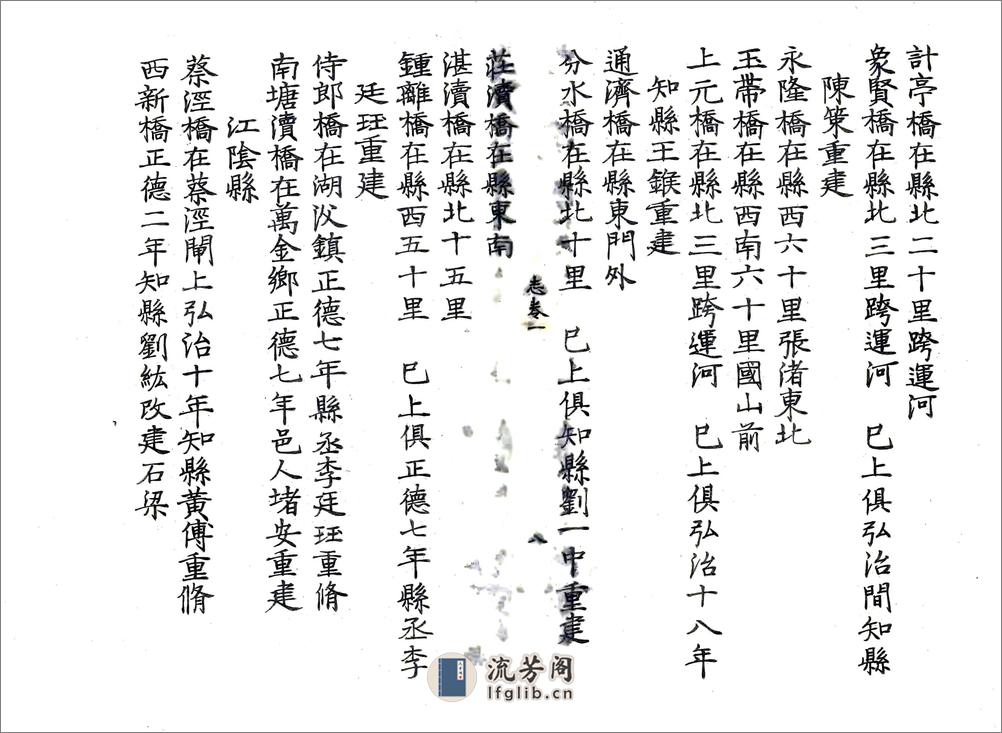 計亭橋在縣北二十里跨運河
象賢橋在縣北三里跨運河　巳上俱弘治間知縣
陳策重建
永隆橋在縣西六十里張渚東北
玉帶橋在縣西南六十里國山前
上元橋在縣北三里跨運河　巳上俱弘治十八年
知縣王鍭重建
通濟橋在縣東門外
分水橋在縣北十里　巳上俱知縣劉一中重建
志卷一
八
莊瀆橋在縣東南
湛瀆橋在縣北十五里
鍾離橋在縣西五十里　巳上俱正德七年縣丞李
廷珏重建
侍郎橋在湖㳇鎮正德七年縣丞李廷珏重脩
南塘瀆橋在萬金鄉正德七年邑人堵安重建
江陰縣
蔡涇橋在蔡涇閘上弘治十年知縣黃傅重脩
西新橋正德二年知縣劉紘改建石梁
流芳阁
lfglib.cn